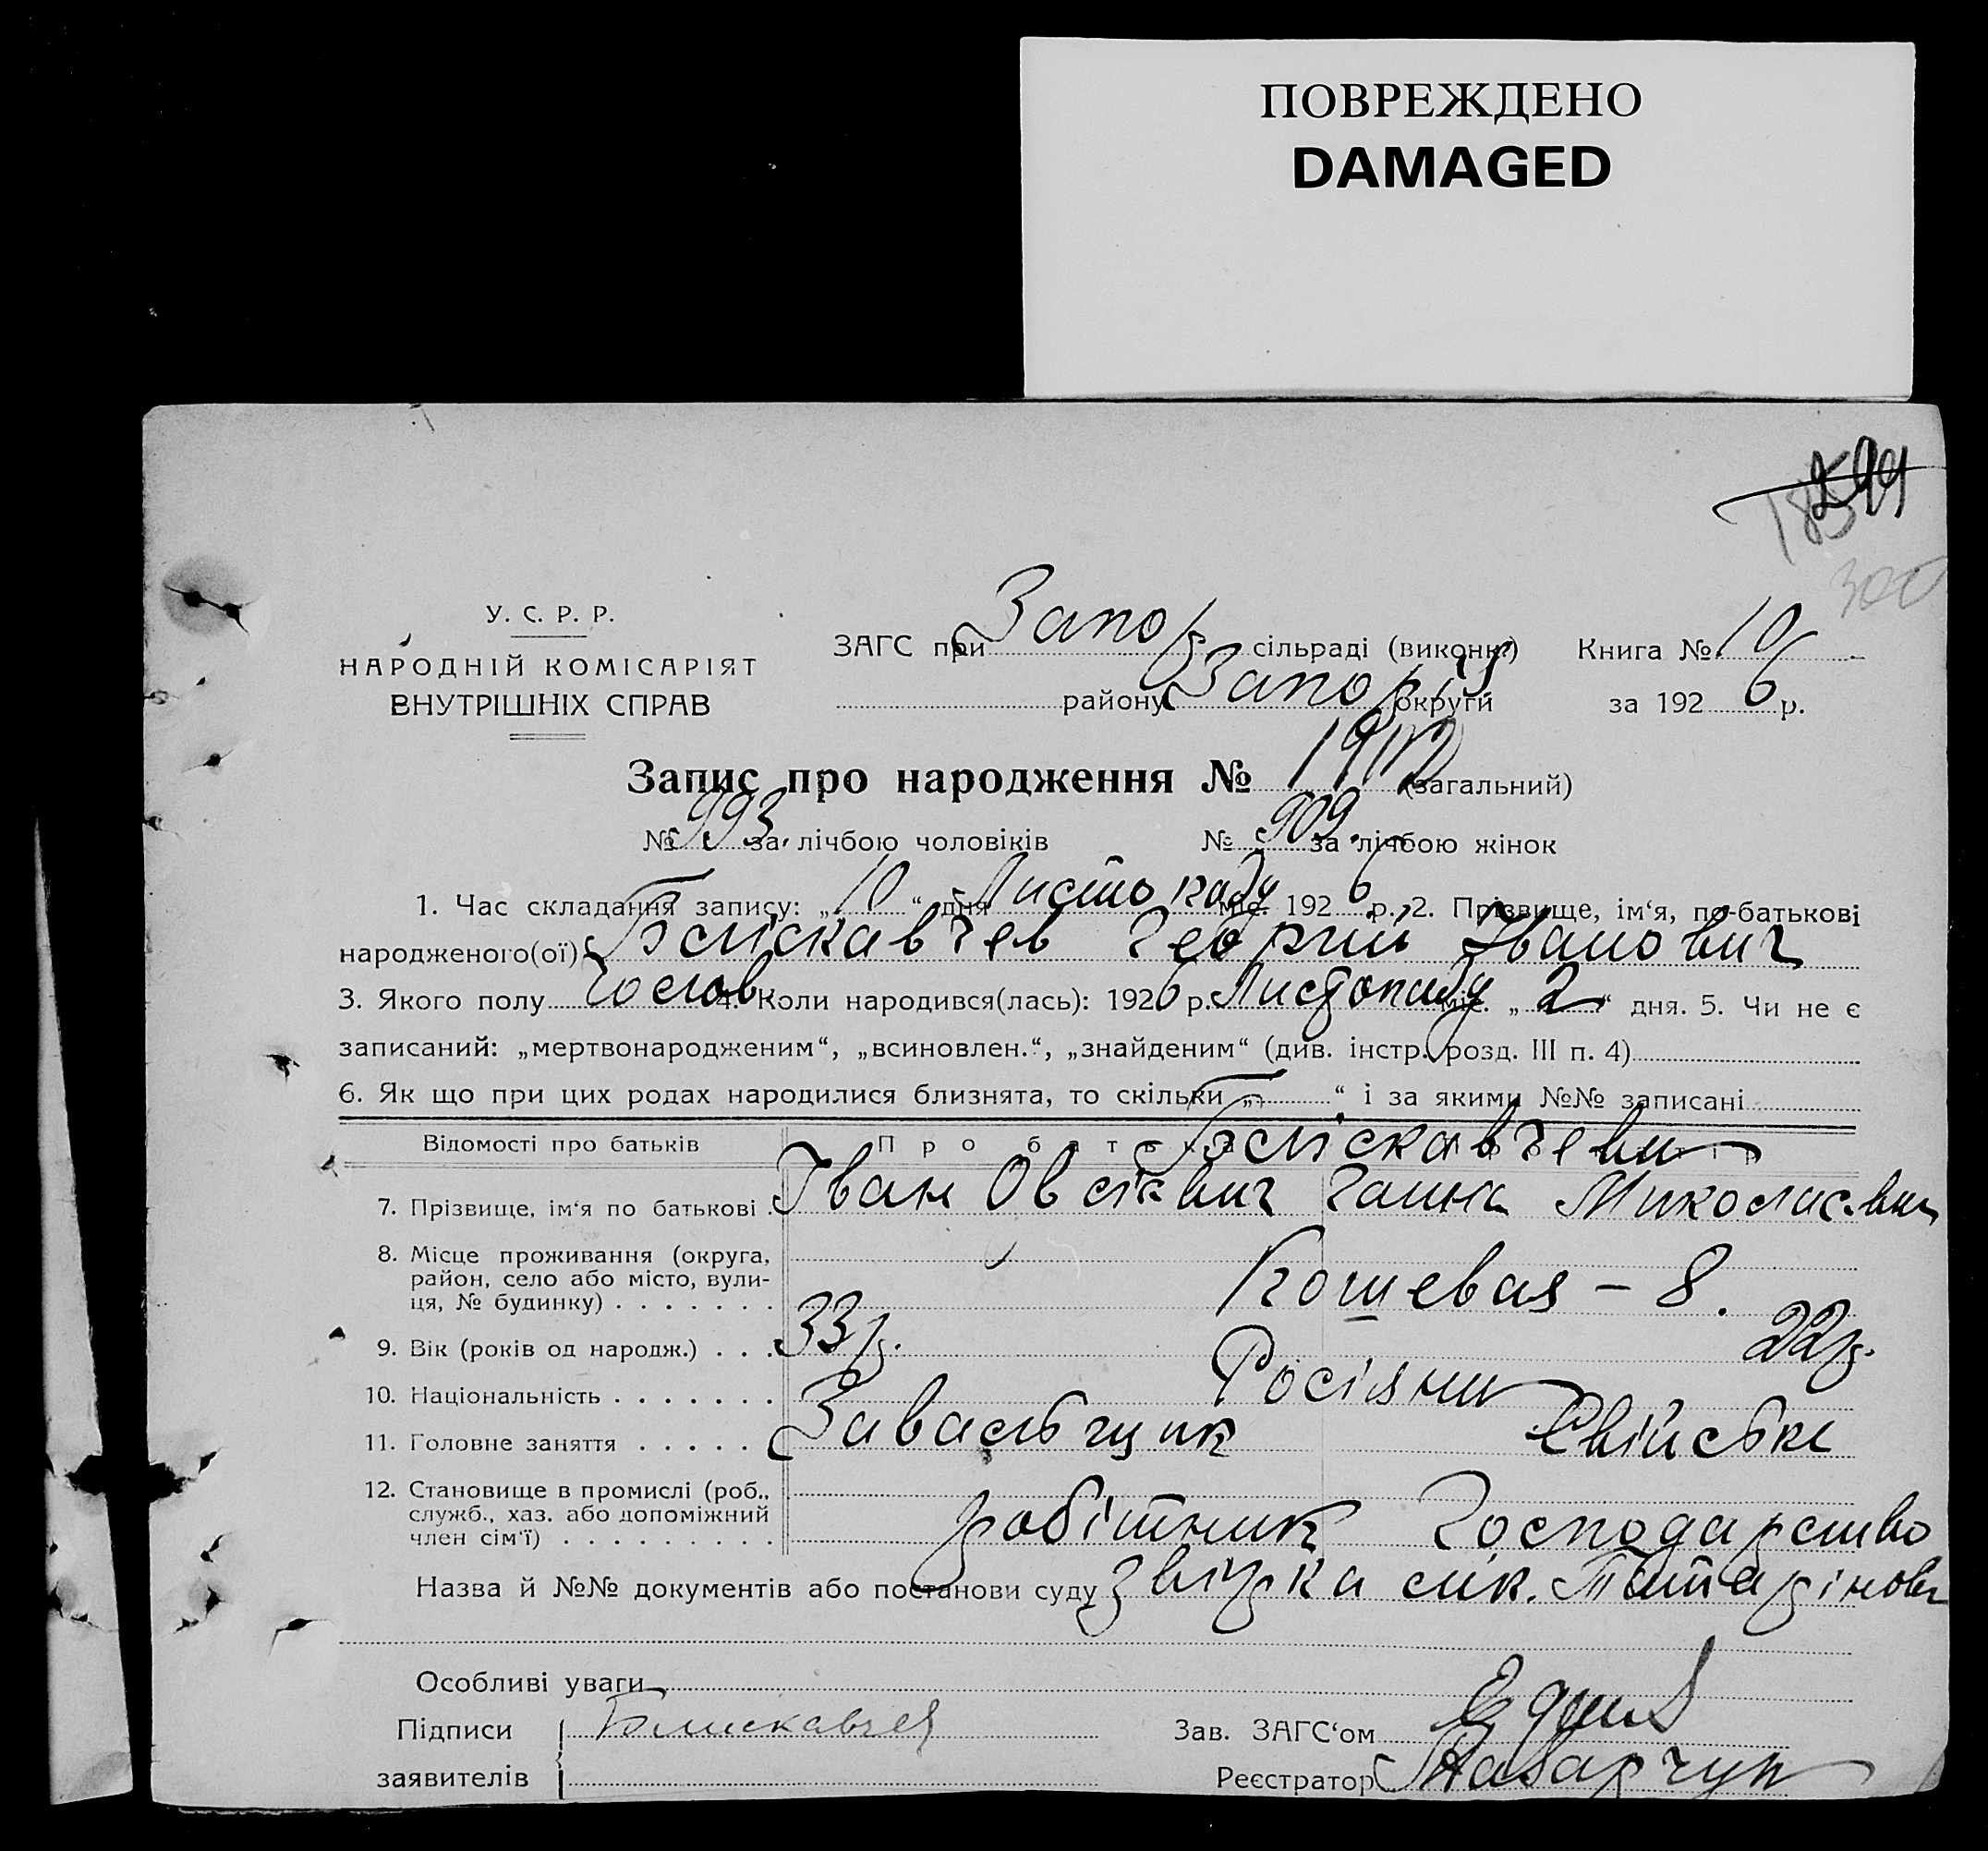 ПОВРЕЖДЕНО
DAMAGED
299
300
У. С. Р. Р.
НАРОДНІЙ КОМІСАРІЯТ
ВНУТРІШНІХ СПРАВ
ЗАГС при Запор сільраді (виконк.) Книга № 10
району Запор округи за 1926 р.
Запис про народження № 1902 (загальний)
№ 993 за лічбою чоловіків № 909 за лічбою жінок
1. Час складання запису: „10“ дня Листопаду міс. 1926 р. 2. Прізвище, ім‘я, по-батькові
народженого(ої) Бліскавчев Георгий Іванович
3. Якого полу Чолов. 4. Коли народився(лась): 1926 р. Листопаду міс. „2“ дня. 5. Чи не є
записаний: „мертвонародженим“, „всиновлен.“, „знайденим“ (див. інстр. розд. III п. 4)
6. Як що при цих родах народилися близнята, то скільки „ “ і за якими №№ записані
Відомості про батьків Про батька Бліскавчеви
7. Прізвище, ім‘я по батькові Іван Овсієвич Ганна Миколаєвна
8. Місце проживання (округа,
район, село або місто, вули-
ця, № будинку) Кошевая – 8.
9. Вік (років од народж.) 33 р. 22 р.
10. Національність Росіяни
11. Головне заняття Завальщик Свійське
12. Становище в промислі (роб.,
служб., хаз. або допоміжний
член сім‘ї) робітник Господарство
Назва й №№ документів або постанови суду звірка лік. Татарінова
Особливі уваги
Підписи Блискавчев Зав. ЗАГС‘ом
заявителів Реєстратор Назарчук